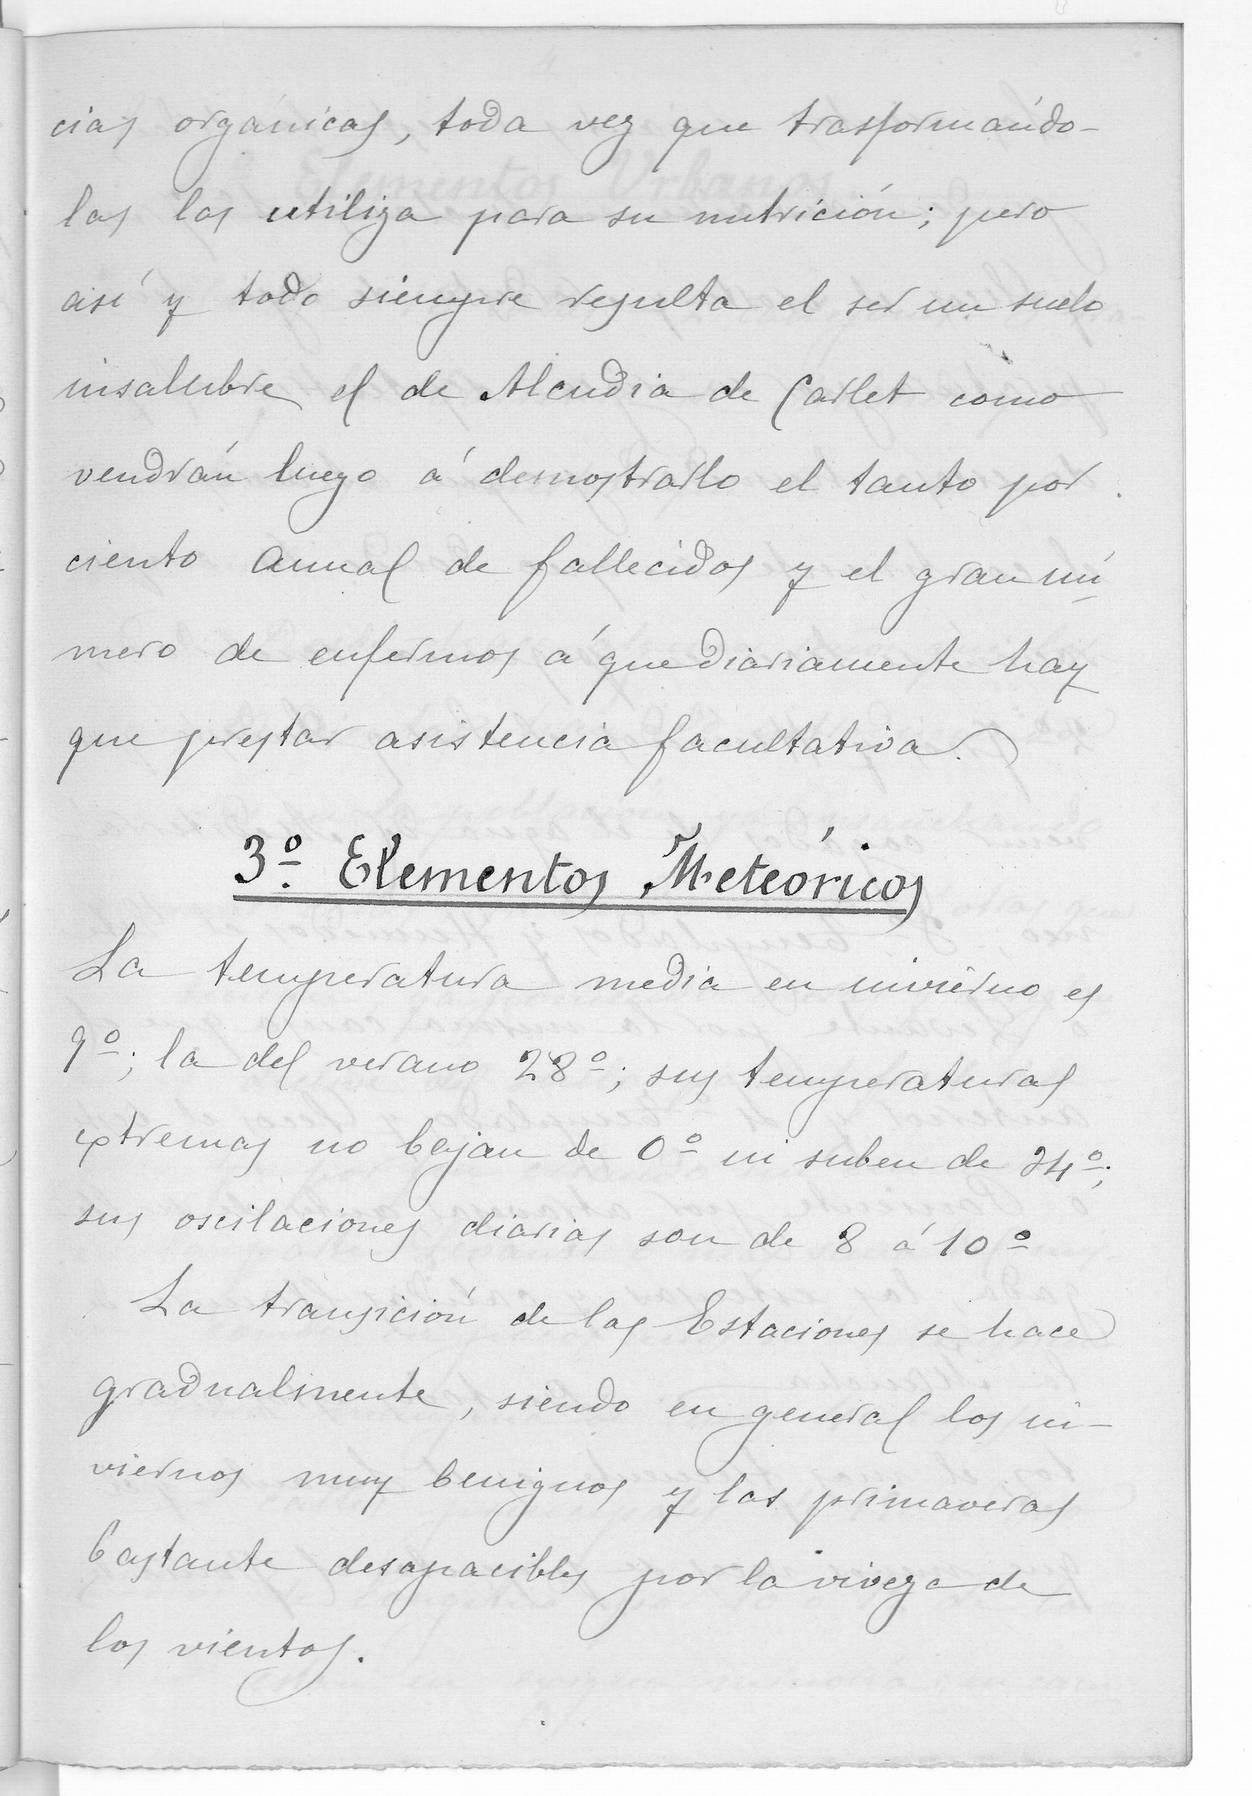 cias orgánicas, toda vez que trasformándo-
las las utiliza para su nutrición; pero
así y todo siempre resulta el ser un suelo
insalubre el de Alcudia de Carlet como
vendrán luego á demostrarlo el tanto por
ciento anual de fallecidos y el gran nú
mero de enfermos á que diariamente hay
que prestar asistencia facultativa.
3º. Elementos Meteóricos
La temperatura media en invierno es
9º; la del verano 28º; sus temperaturas
extremas no bajan de 0º ni suben de 34º;
sus oscilaciones diarias son de 8 á 10º
La transición de las Estaciones se hace
gradualmente, siendo en general los in-
viernos muy benignos y las primaveras
bastante desapacibles por la viveza de
los vientos.